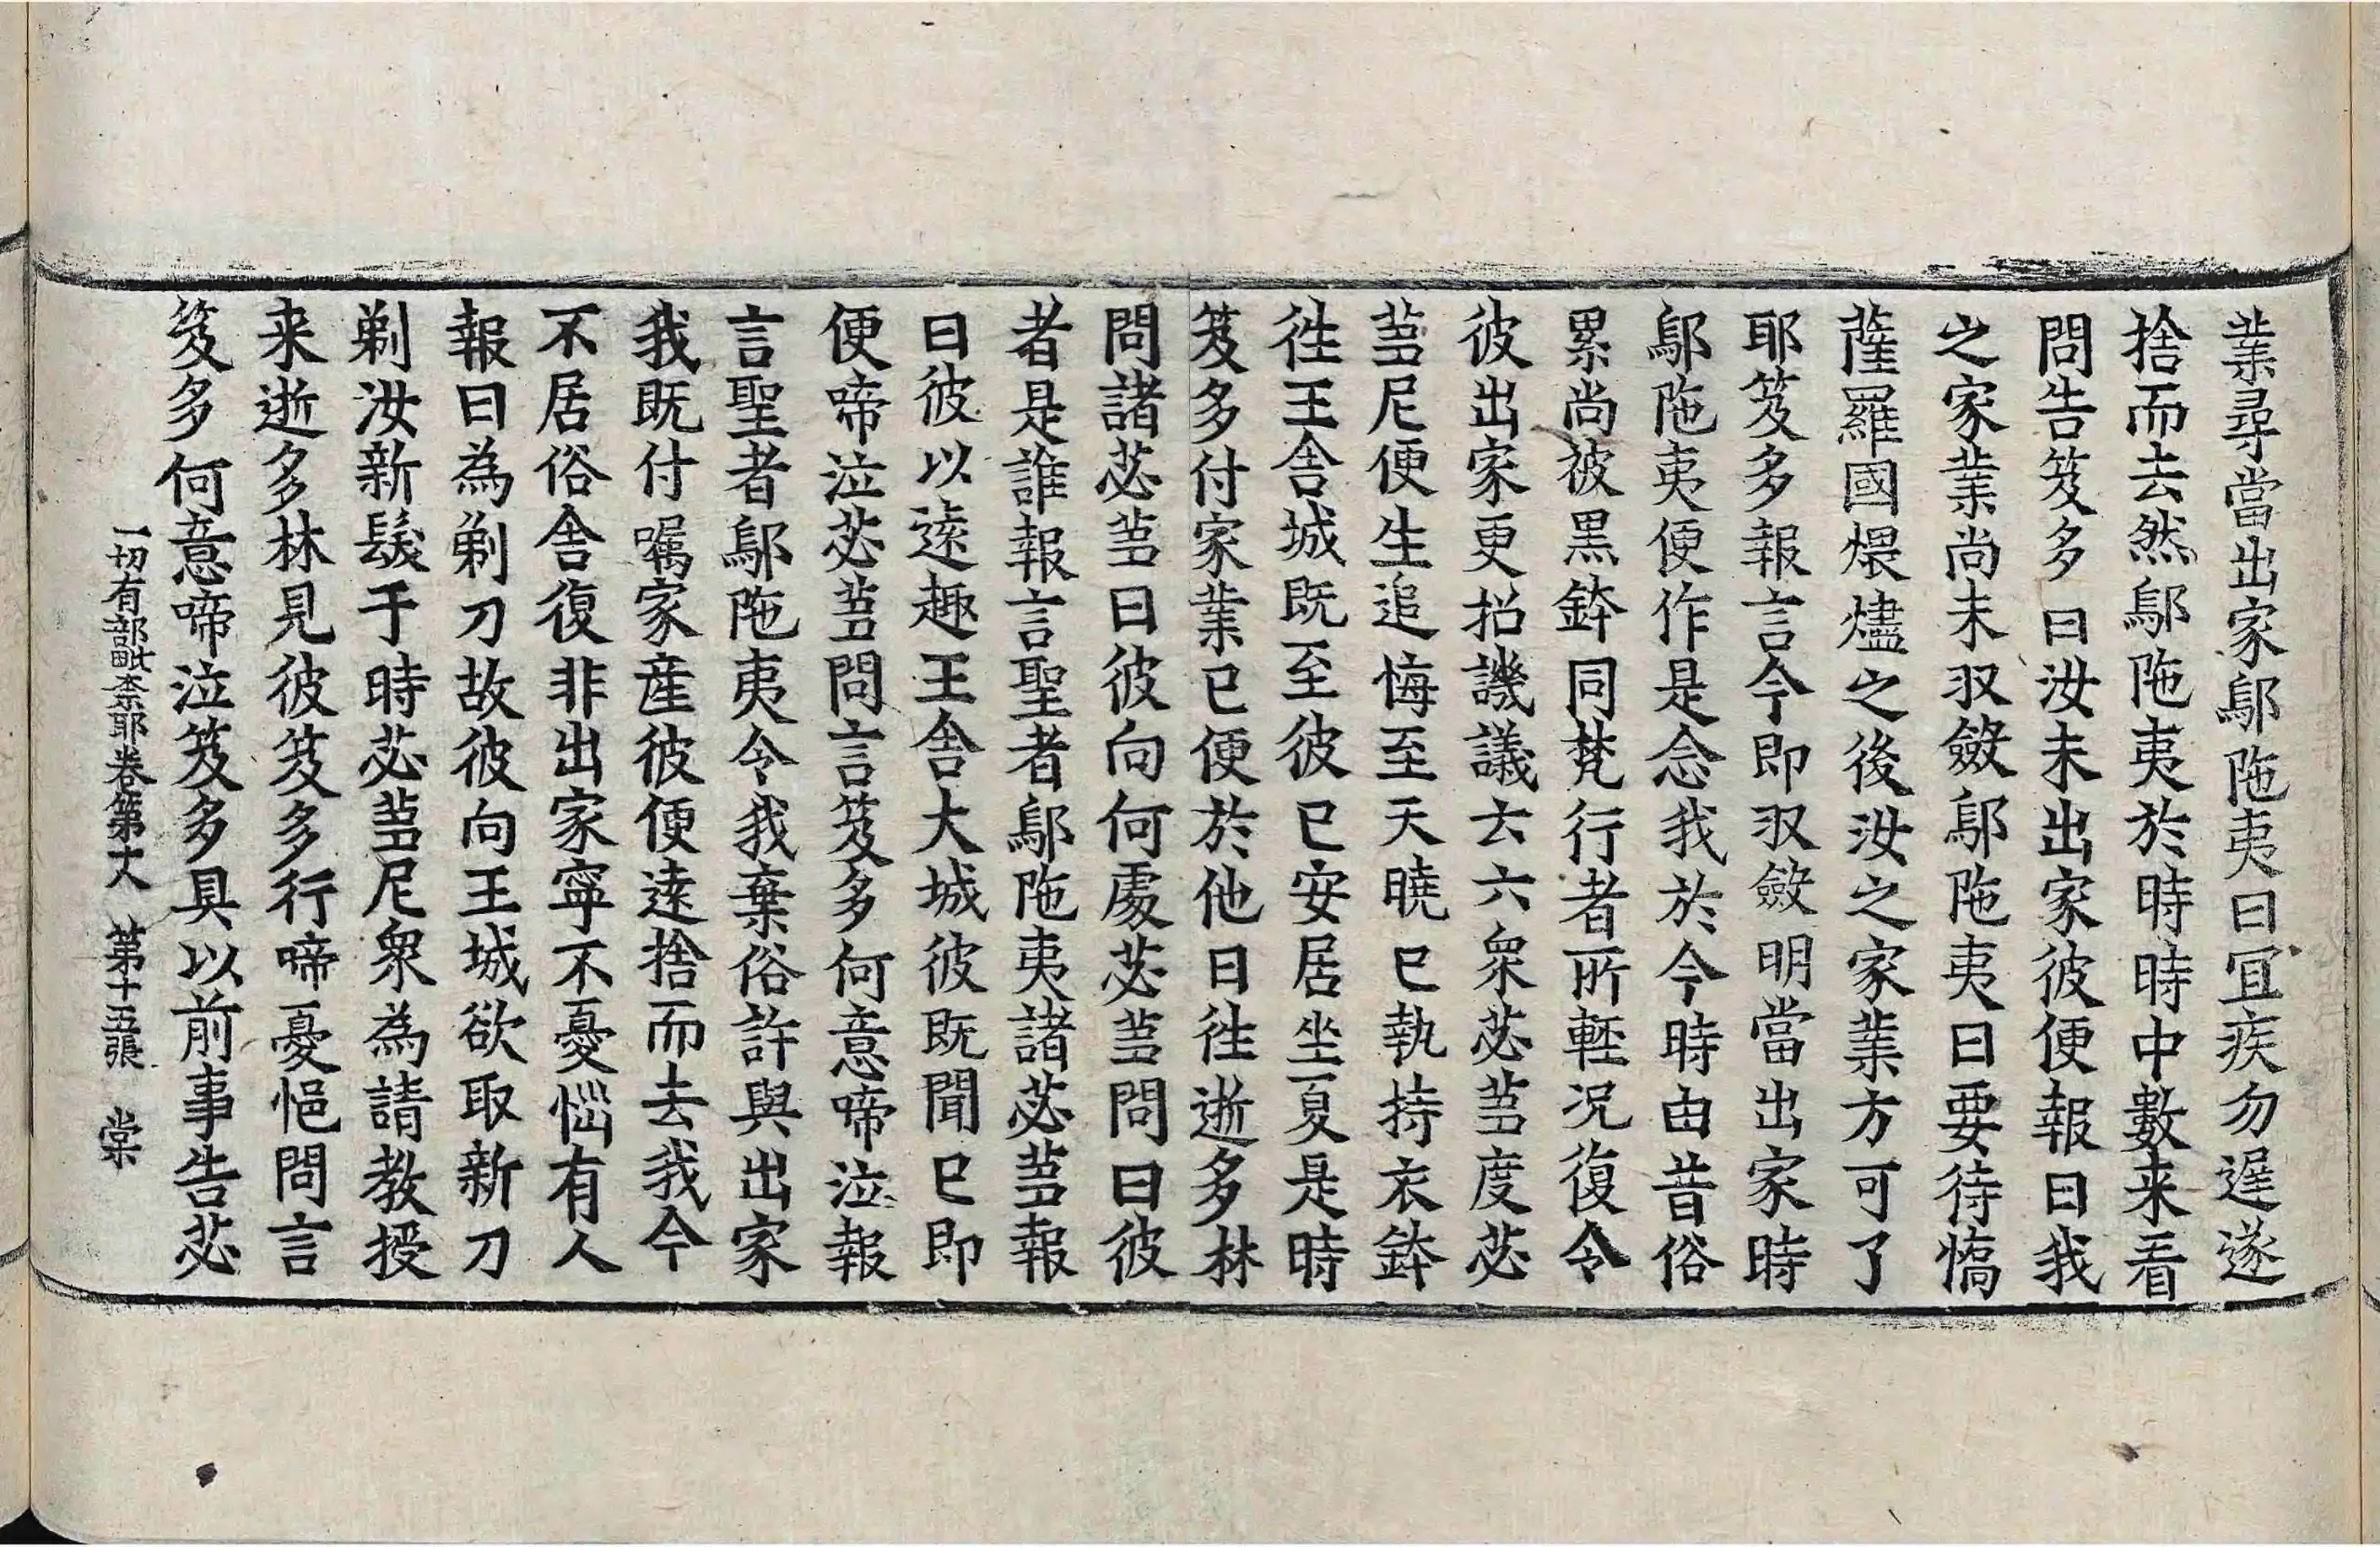 業尋當出家鄔陁夷曰冝疾勿遅遂
捨而去然鄔陁夷於時時中數来看
問告笈多曰汝未出家彼便報曰我
之家業尚未収斂鄔陁夷曰要待憍
薩羅國煨燼之後汝之家業方可了
耶笈多報言今即収斂明當出家時
鄔陁夷便作是念我於今時由昔俗
累尚彼黒鉢同梵行者所輕况復令
彼出家更招譏議去六衆苾蒭度苾
蒭尼便生追悔至天曉已執持衣鉢
徃王舎城既至彼已安居坐夏是時
笈多付家業已便於他日徃逝多林
問諸苾蒭曰彼向何處苾蒭問曰彼
者是誰報言聖者鄔陁夷諸苾蒭報
曰彼以遠趣王舎大城彼既聞已即
便啼泣苾蒭問言笈多何意啼泣報
言聖者鄔陁夷令我棄俗許與出家
我既付嘱家産彼便遠捨而去我今
不居俗舎復非出家寧不憂惱有人
報曰為剃刀故彼向王城欲取新刀
剃汝新髮于時苾蒭尼衆為請教授
来逝多林見彼笈多行啼憂悒問言
笈多何意啼泣笈多具以前事告苾
一切有部毗柰耶卷第十八 第十五張 棠